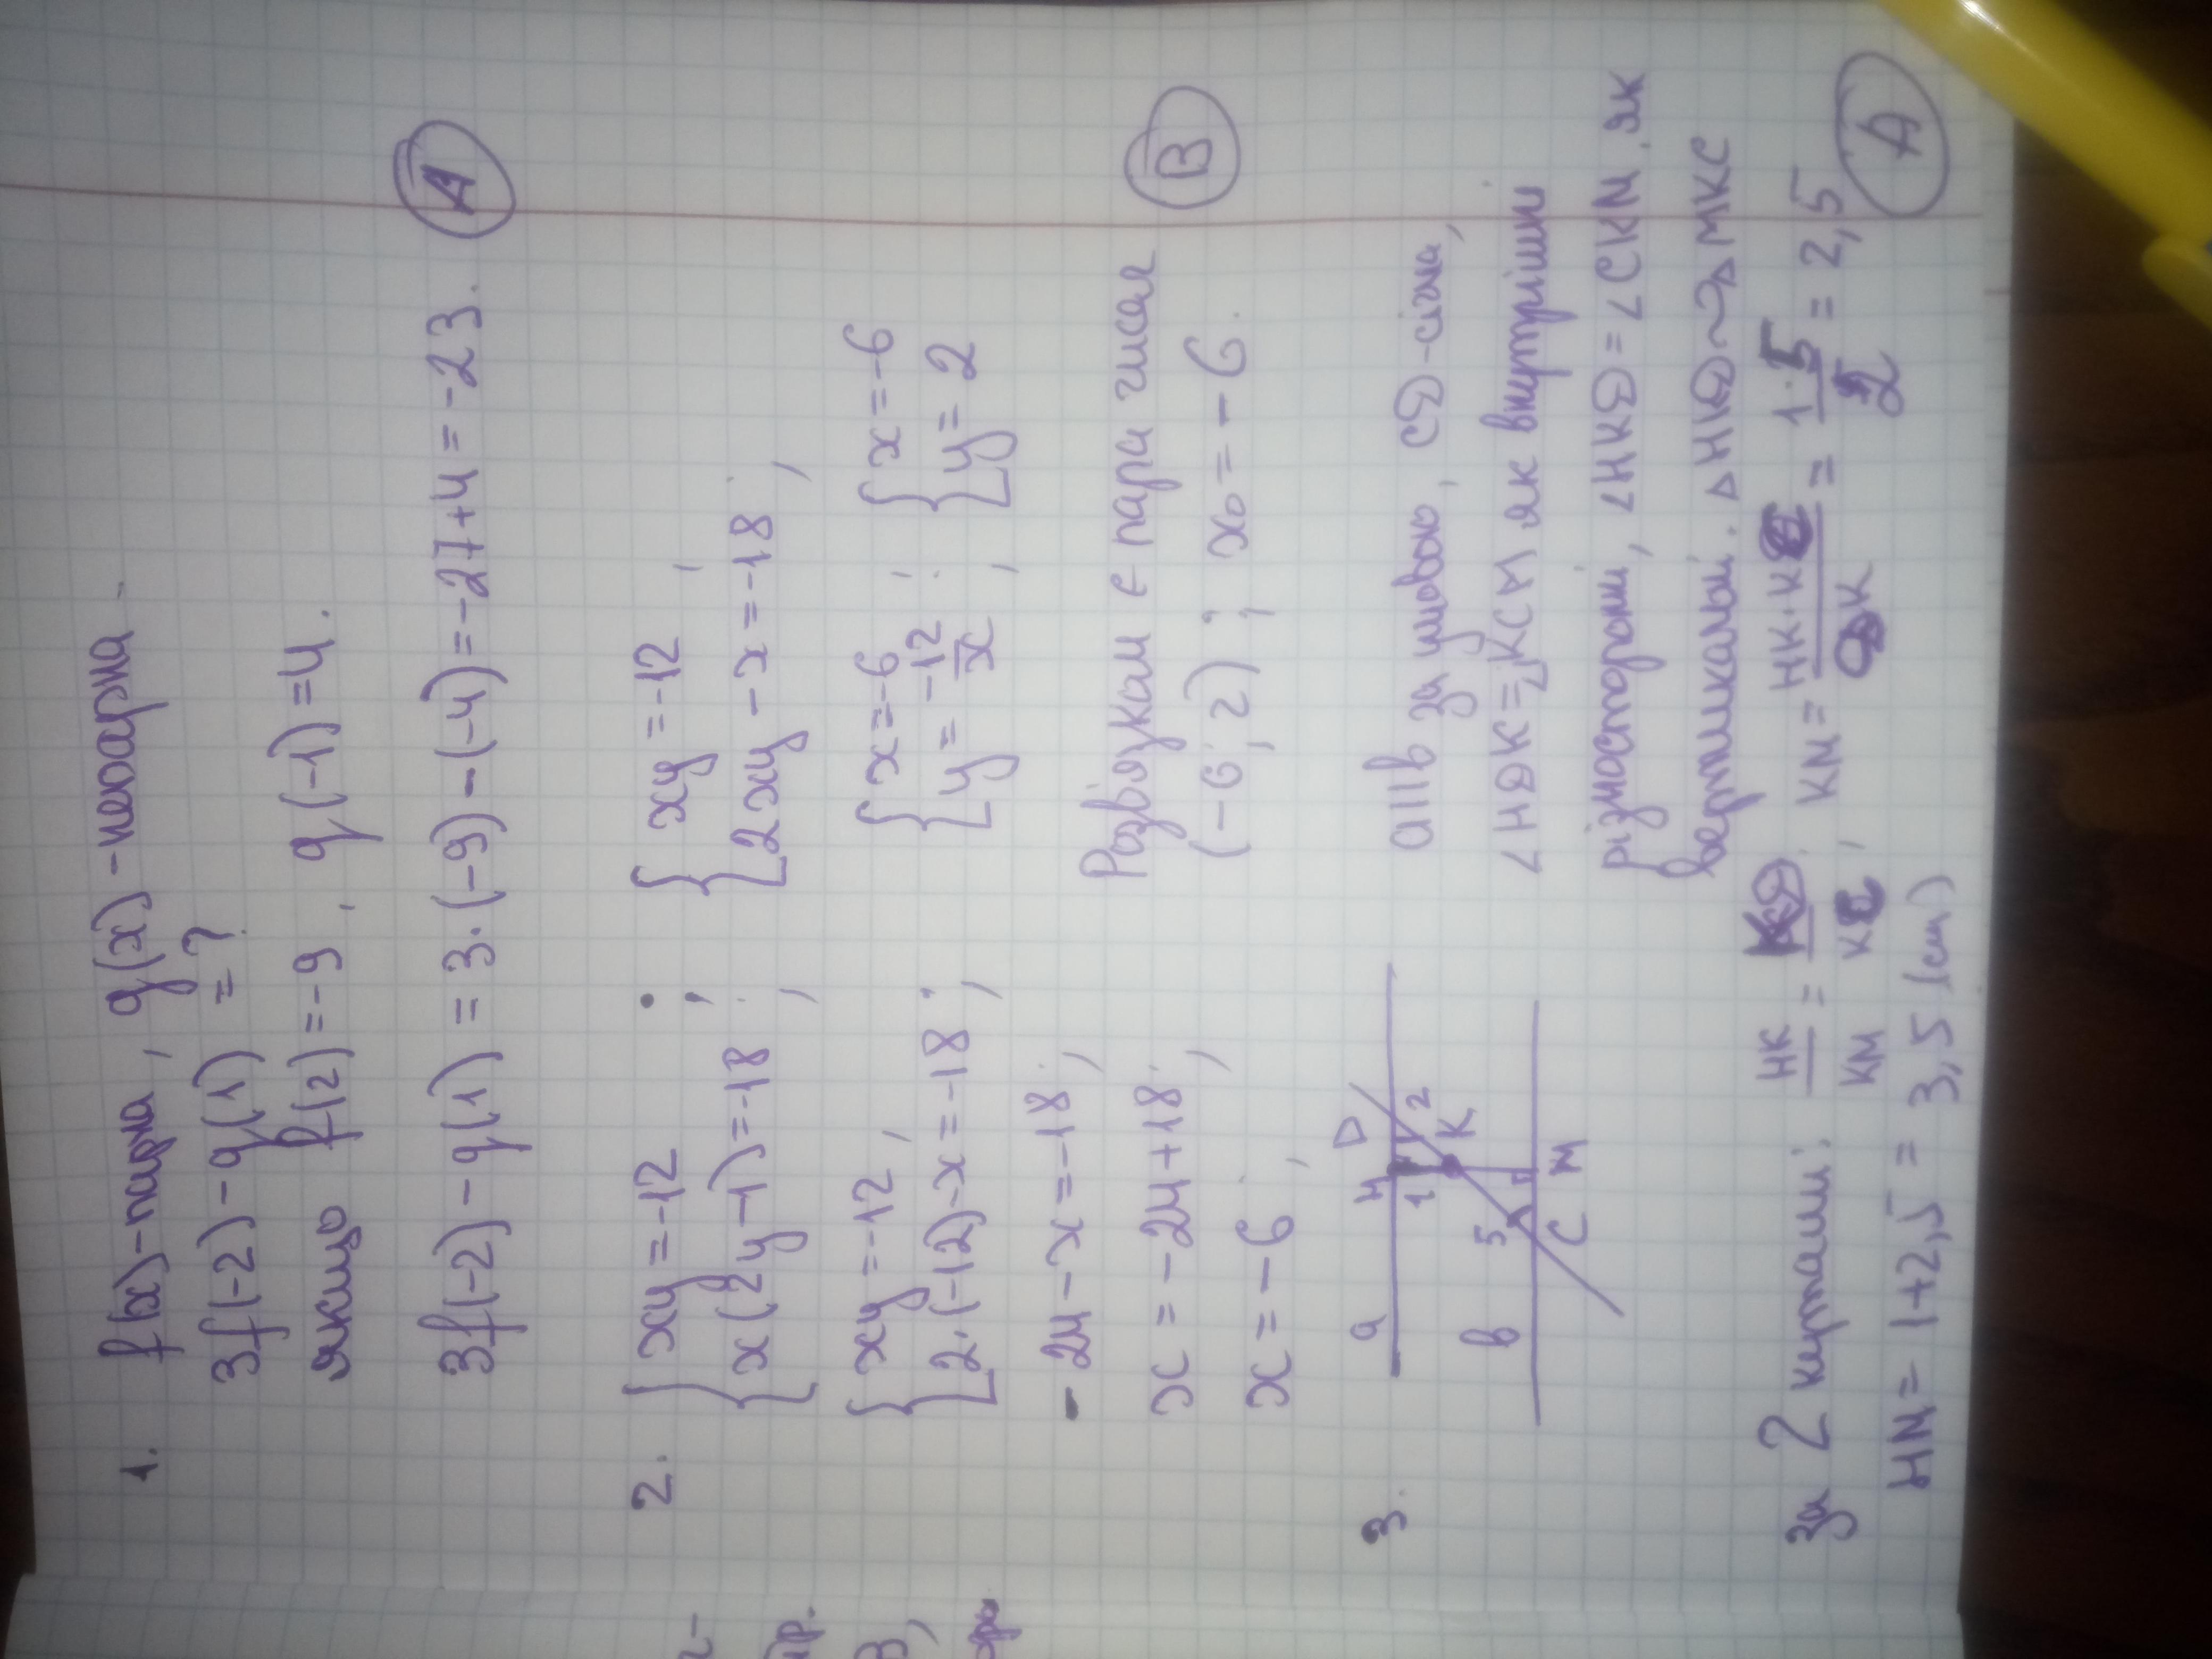 1. f(x) - парна, g(x) - непарна.
3f(-2) - g(1) = ?
якщо f(2) = -9, g(-1) = 4.
3f(-2) - g(1) = 3·(-9) - (-4) = -27 + 4 = -23. A
2. { xy = -12 ; { xy = -12 ;
{ x(2y - 1) = -18 ; { 2xy - x = -18 ;
{ xy = -12 ; { x = -6 ; { x = -6
{ 2·(-12) - x = -18 ; { y = -12/x ; { y = 2
-24 - x = -18 ;
x = -24 + 18 ;
x = -6 ;
Розв'язком є пара чисел
(-6; 2) ; x₀ = -6. B
3. a D
H 1 2
K
b 5
C M
a||b за умовою, CD - січна,
∠HDK = ∠KCM як внутрішні
різносторонні, ∠HKD = ∠CKM, як
вертикальні. △HKD ~ △MKC
за 2 кутами; HK/KM = KD/KC ; KM = HK·KC/DK = 1·5/2 = 2,5
HM = 1 + 2,5 = 3,5 (см) A